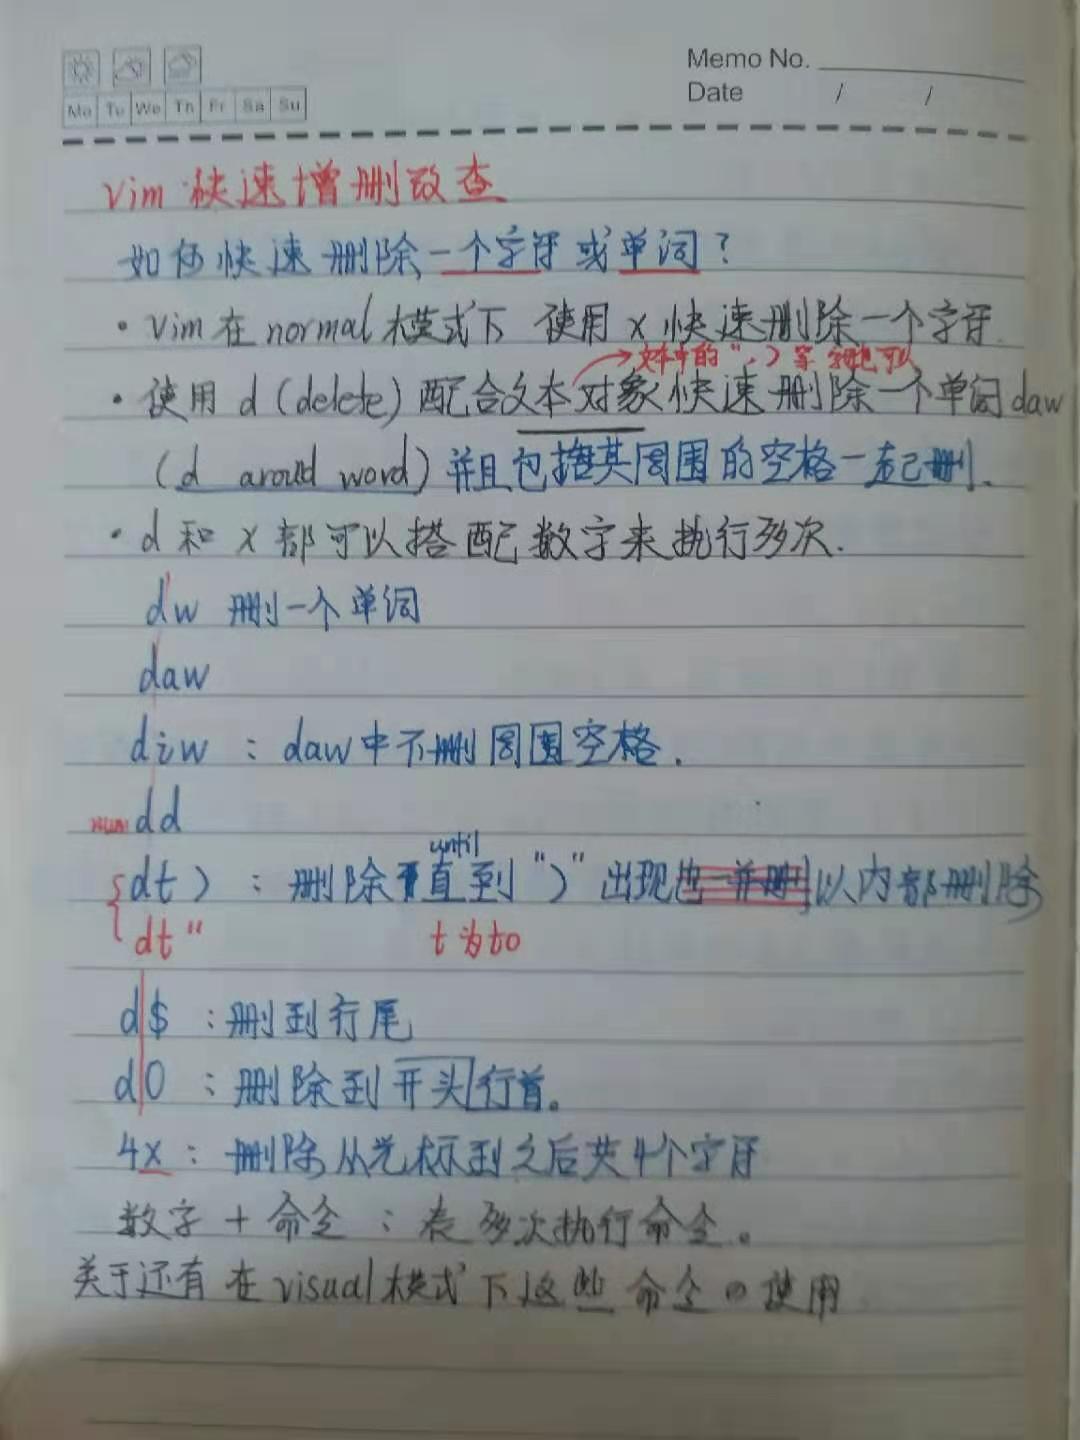 Memo No.
Date / /
Mo Tu We Th Fr Sa Su
vim 快速增删改查
如何快速删除一个字符或单词？
· vim 在 normal 模式下 使用 x 快速删除一个字符.
文本中的 " , ) 等
· 使用 d (delete) 配合文本对象快速删除一个单词 daw
(d aroud word) 并且包括其周围的空格一起删.
· d 和 x 都可以搭配数字来执行多次.
dw 删一个单词
daw
diw : daw中不删周围空格.
num dd
until
dt) : 删除 直到 ")" 出现 以内部删除
dt" t为to
d$ : 删到行尾
d0 : 删除到开头行首。
4x : 删除从光标到之后共4个字符
数字 + 命令 : 表多次执行命令。
关于还有在visual模式下这些命令的使用